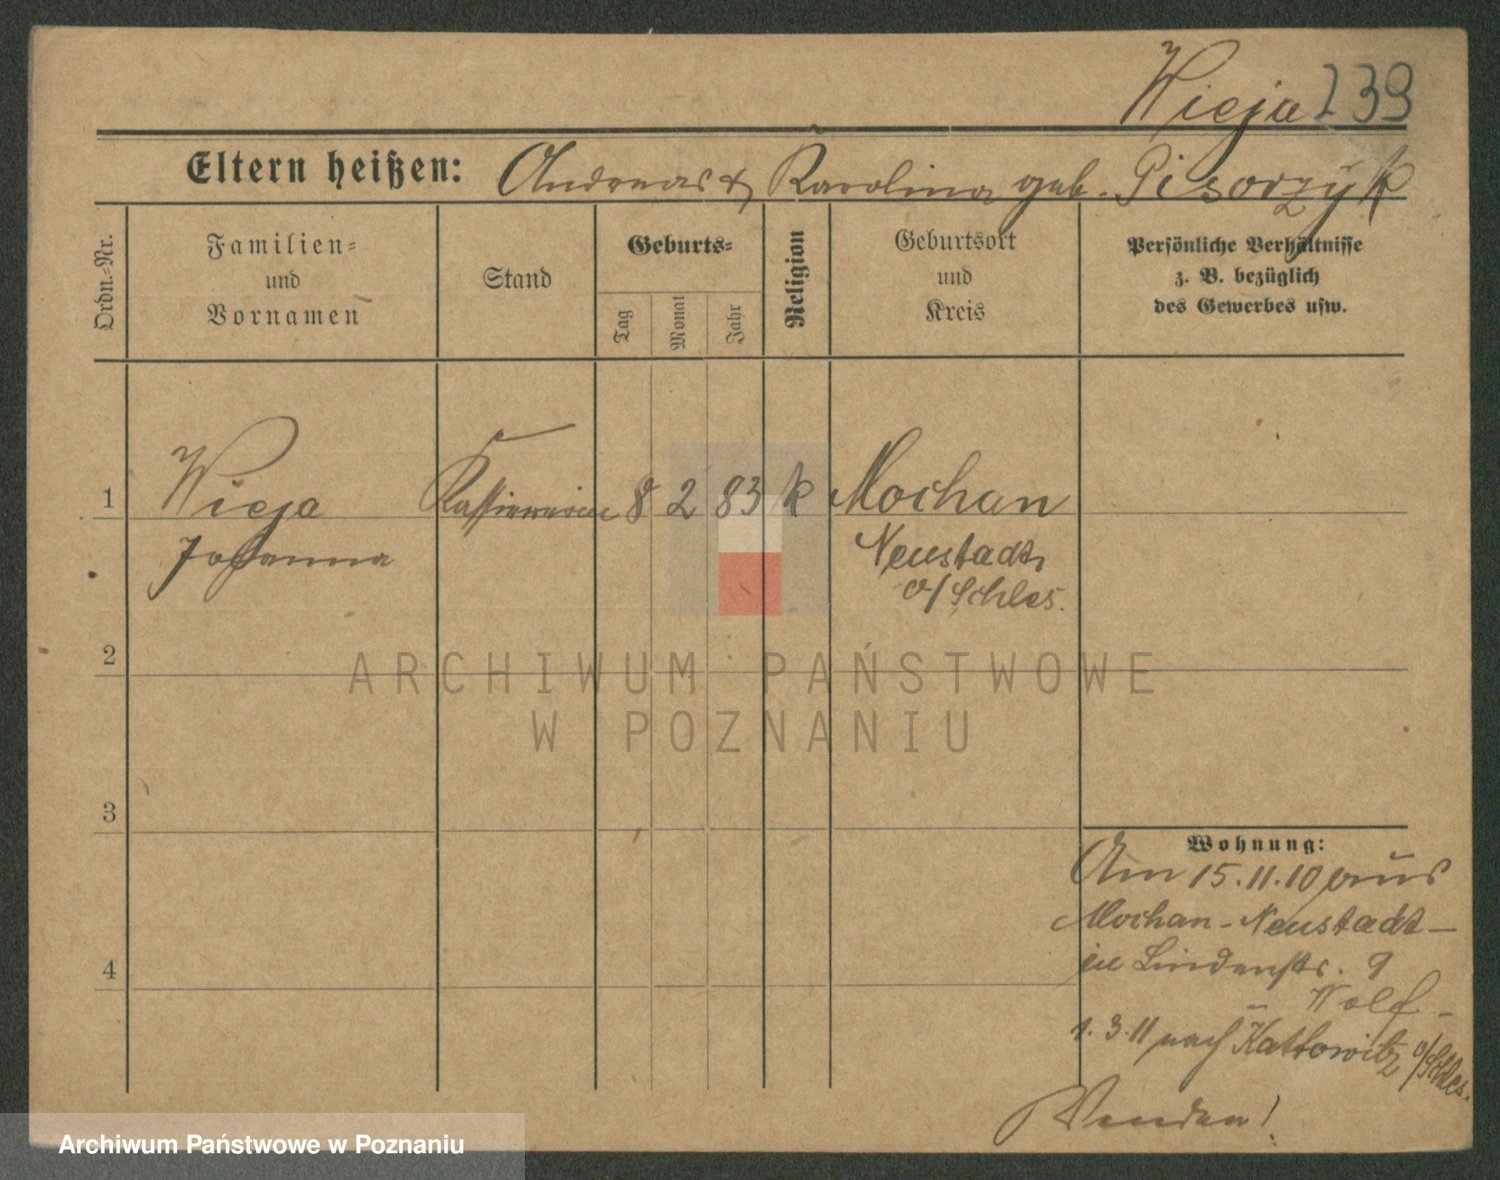 Wieja 239
Eltern heißen: Andreas & Karolina geb. Pisorzyk
Ordn.-Nr.
Familien-
und
Vornamen
Stand
Geburts-
Tag
Monat
Jahr
Religion
Geburtsort
und
Kreis
Persönliche Verhältnisse
z. B. bezüglich
des Gewerbes usw.
1
Wieja
Johanna
Kassiererin
8 2 83 k
Mochau
Neustadt
o/Schles.
2
3
4
Wohnung:
Am 15.11.10 aus
Mochau - Neustadt -
in Lindenstr. 9
- Wolf -
1.3.11 nach Kattowitz o/Schles.
Wenden!
ARCHIWUM PAŃSTWOWE
W POZNANIU
Archiwum Państwowe w Poznaniu